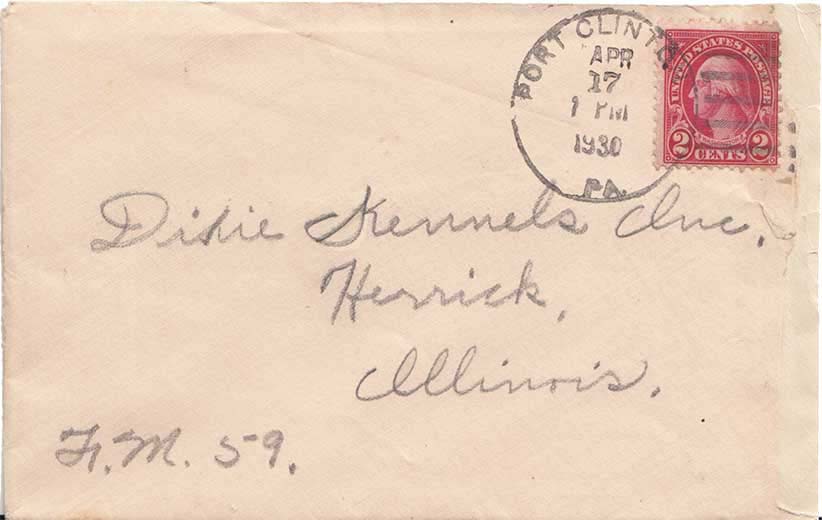 PORT CLINTO
APR
17
1 PM
1930
PA.
UNITED STATES POSTAGE
2 CENTS 2
Dixie Kennels Inc.
Herrick,
Illinois.
F.M. 59.